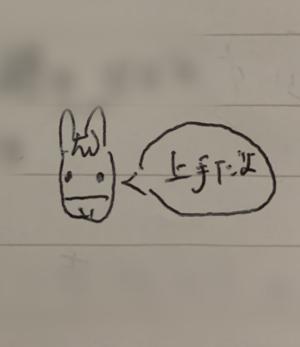 上手だよ